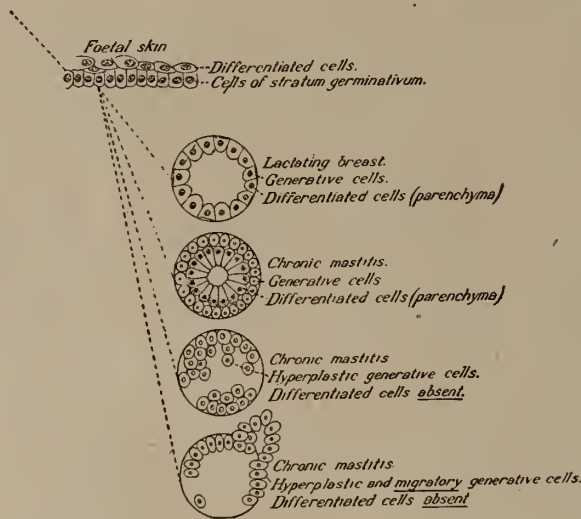 Foetal skin
Differentiated cells.
Cells of stratum germinativum.
Lactating breast.
Generative cells.
Differentiated cells (parenchyma)
Chronic mastitis.
Generative cells
Differentiated cells (parenchyma)
Chronic mastitis
Hyperplastic generative cells.
Differentiated cells absent.
Chronic mastitis.
Hyperplastic and migratory generative cells.
Differentiated cells absent